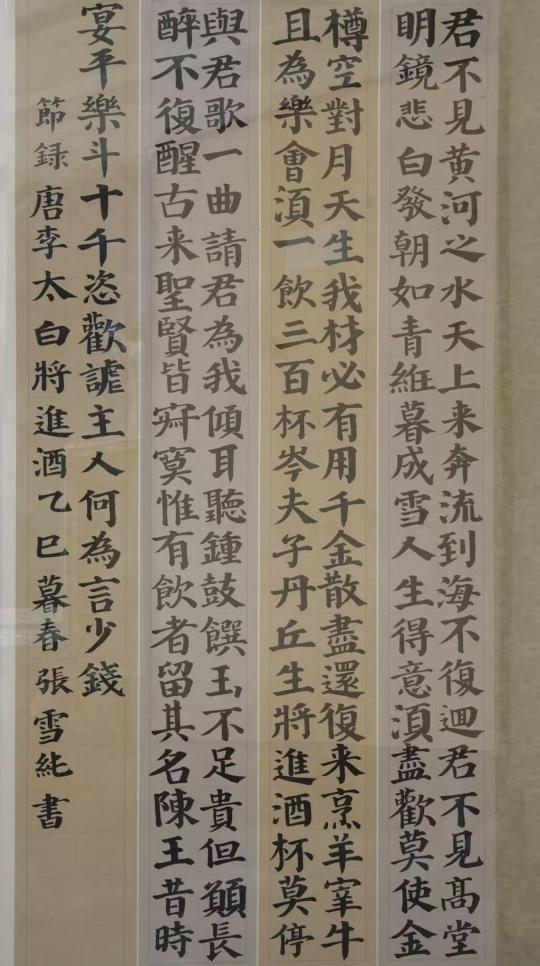 君不見黄河之水天上来奔流到海不復迴君不見髙堂
明鏡悲白發朝如青絲暮成雪人生得意湏盡歡莫使金
樽空對月天生我材必有用千金散盡還復来烹羊宰牛
且為樂會湏一飲三百杯岑夫子丹丘生將進酒杯莫停
與君歌一曲請君為我傾耳聽鍾鼓饌玉不足貴但願長
醉不復醒古来聖賢皆寂寞惟有飲者留其名陳王昔時
宴平樂斗十千恣歡謔主人何為言少錢
節録唐李太白將進酒乙巳暮春張雪純書